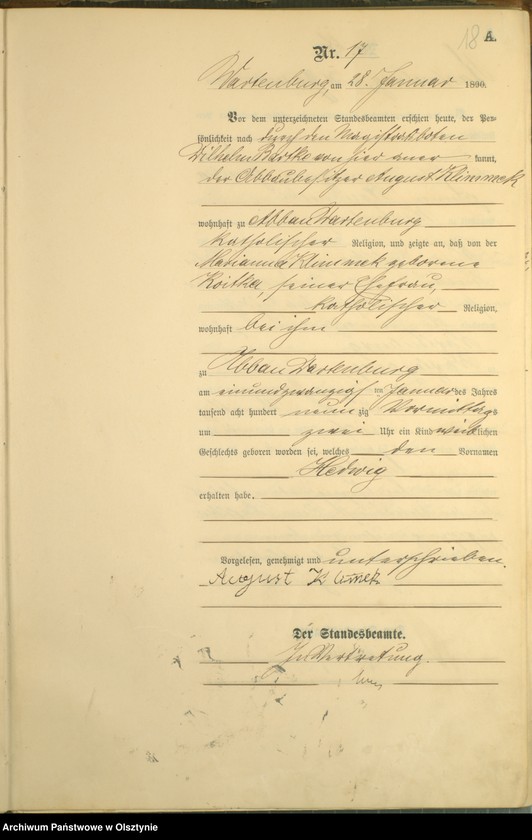 18 A.
Nr. 17
Wartenburg, am 28. Januar 1890.
Vor dem unterzeichneten Standesbeamten erschien heute, der Per-
sönlichkeit nach durch den Magistratsboten
Wilhelm Bartke von hier aner kannt,
der Abbaubesitzer August Klimmek
wohnhaft zu Abbau Wartenburg
katholischer Religion, und zeigte an, daß von der
Marianna Klimmek geborene
Koitka, seiner Ehefrau,
katholischer Religion,
wohnhaft bei ihm
zu Abbau Wartenburg
am einundzwanzigsten Januar des Jahres
tausend acht hundert neun zig Vormittags
um zwei Uhr ein Kind weiblichen
Geschlechts geboren worden sei, welches den Vornamen
Hedwig
erhalten habe.
Vorgelesen, genehmigt und unterschrieben.
August Klimek
Der Standesbeamte.
In Vertretung.
Archiwum Państwowe w Olsztynie